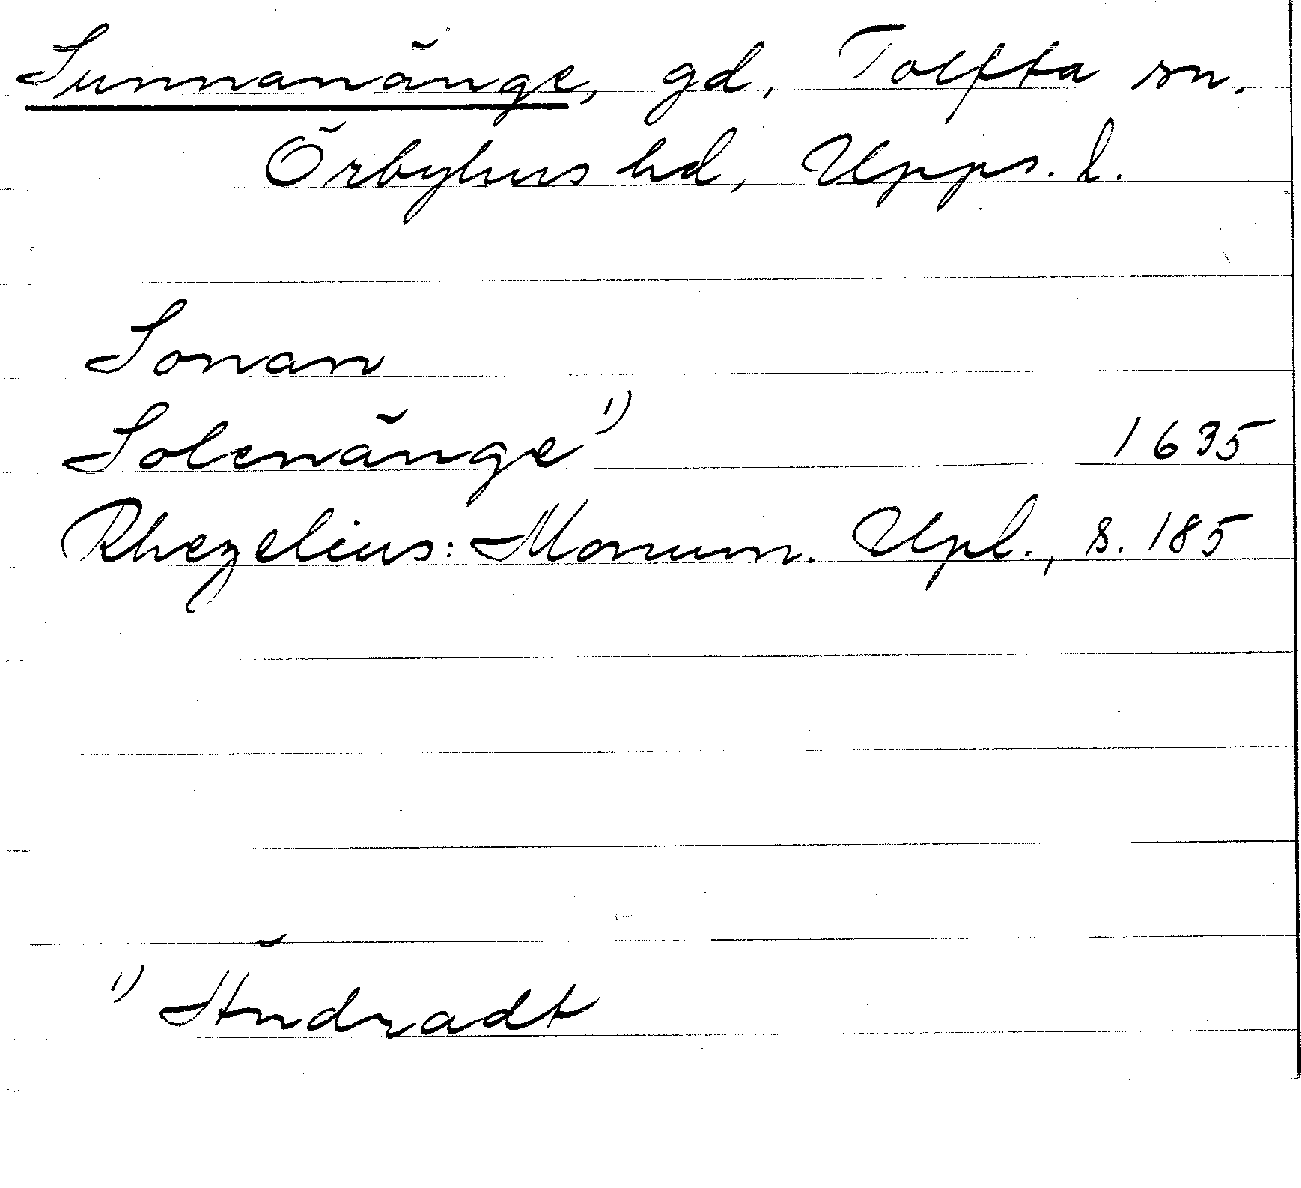 Sunnanänge, gd, Tolfta sn.
Örbyhus hd, Upps. l.
Sonan
Solenänge 1) 1635
Rhezelius: Monum. Upl., s. 185
1) Ändradt